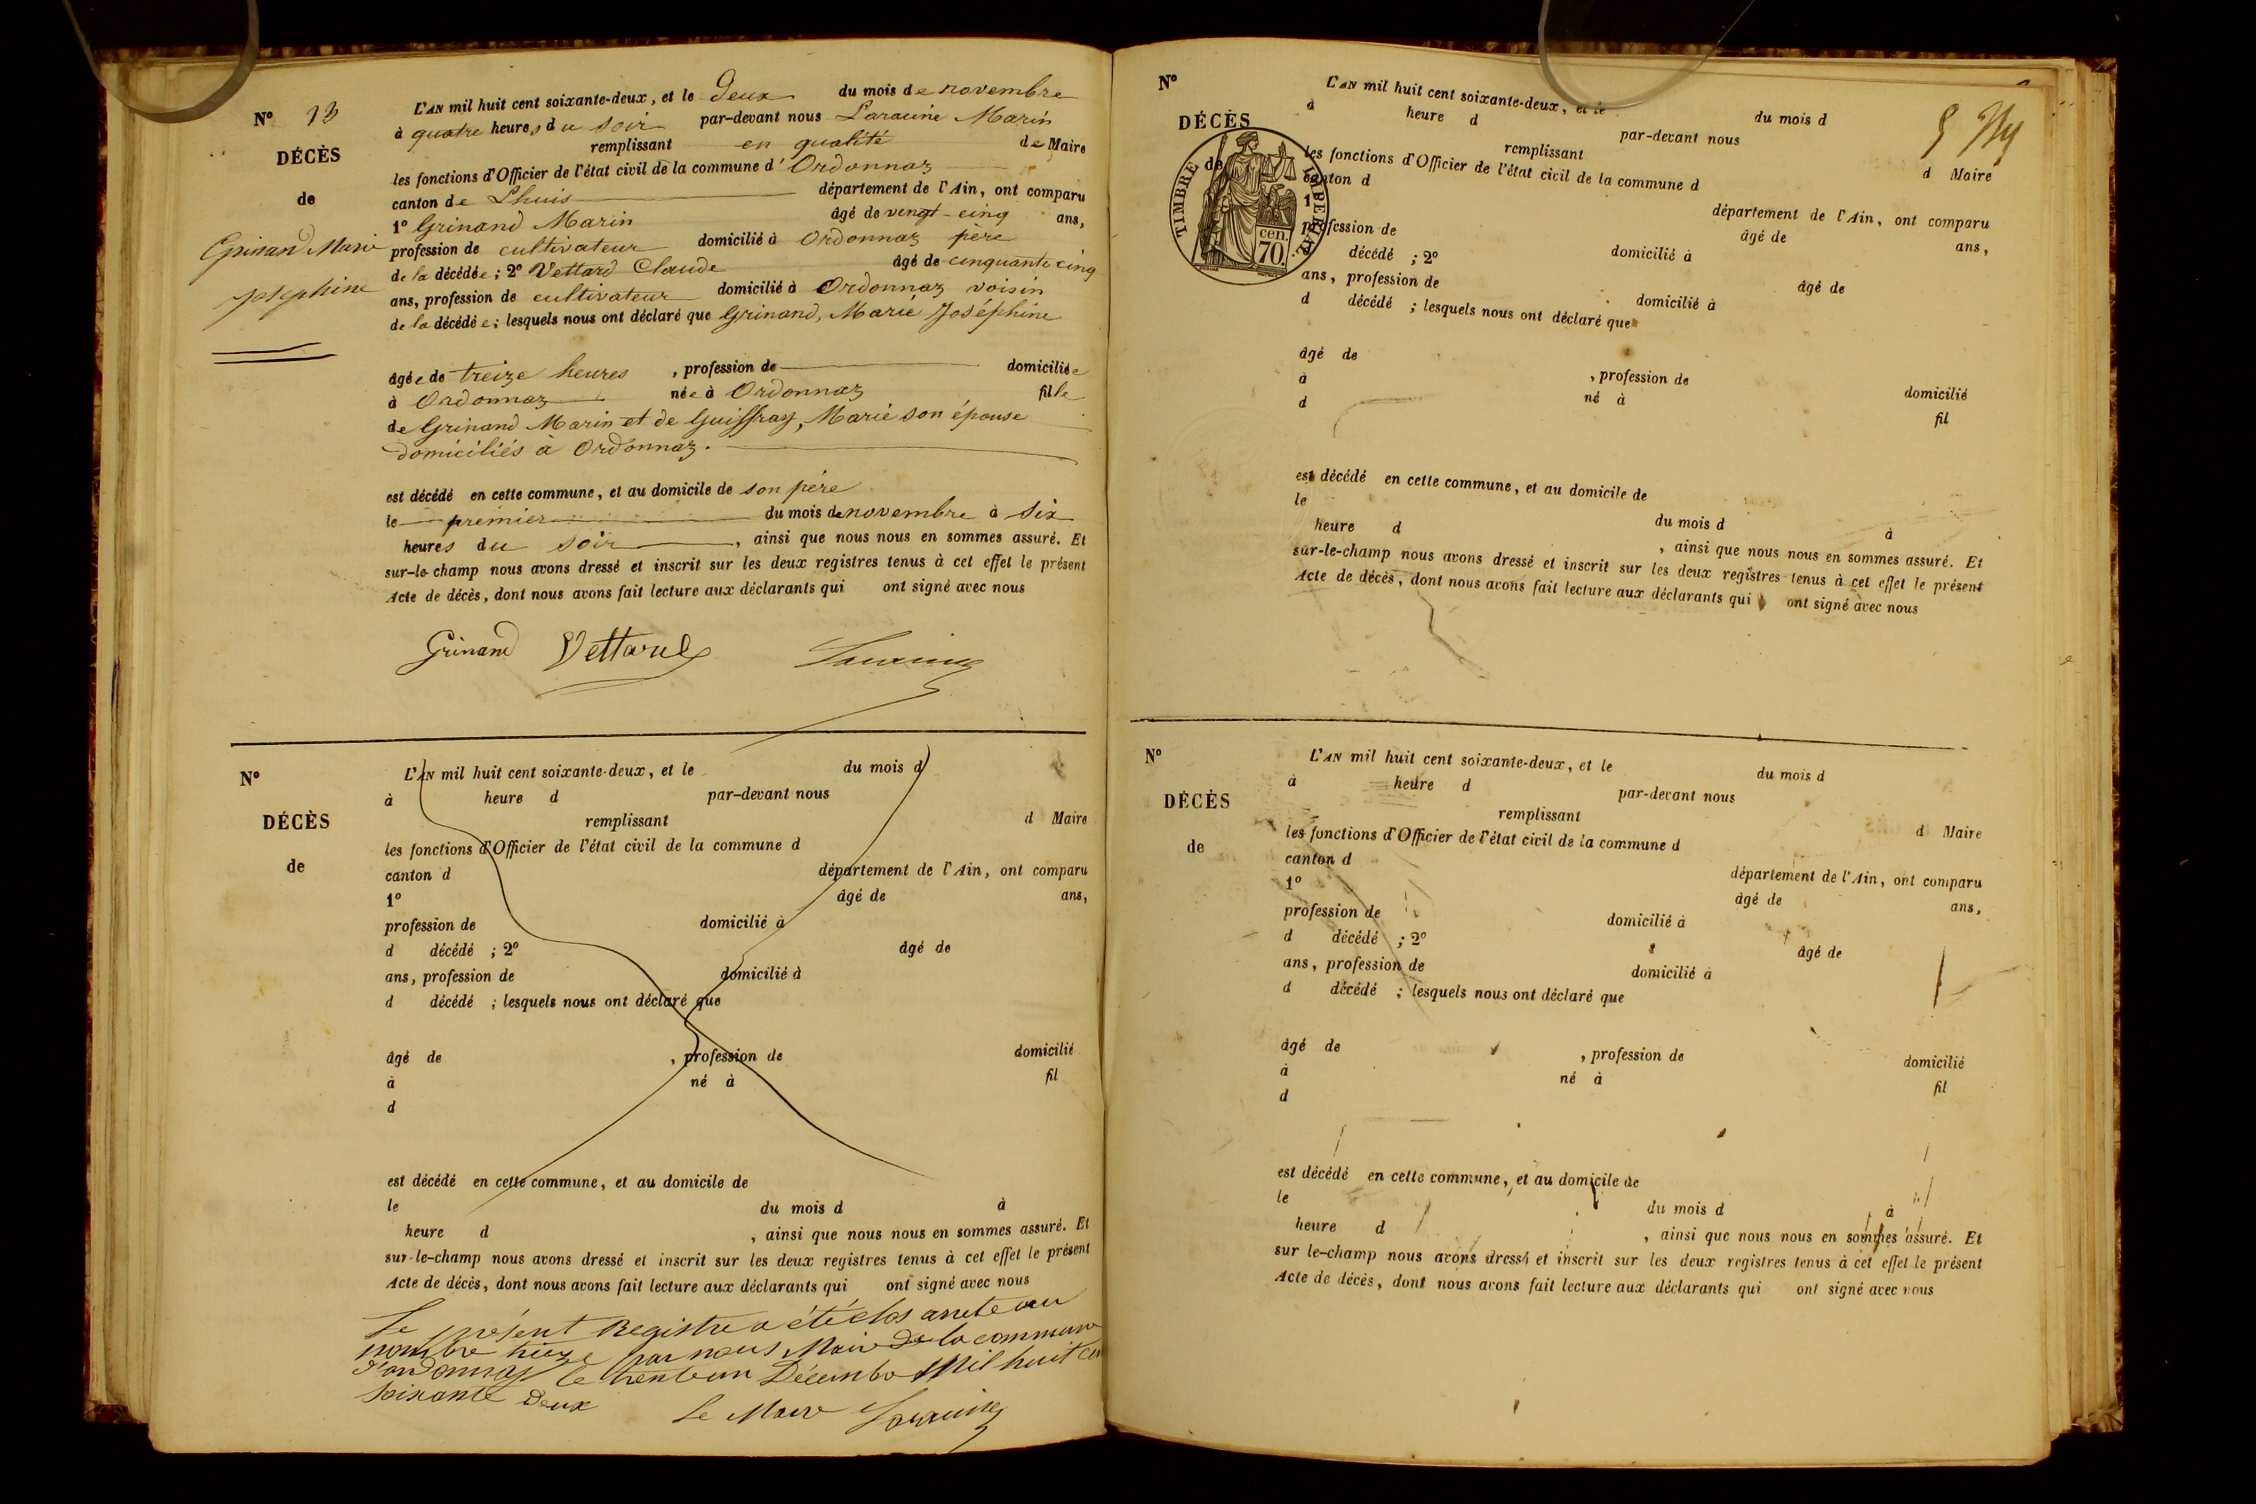 N° 13
DÉCÈS
de
Grinand Marie
Joséphine
L'AN mil huit cent soixante-deux, et le Deux du mois de novembre
à quatre heures du soir par-devant nous Laraine Marin
remplissant en qualité de Maire
les fonctions d'Officier de l'état civil de la commune d'Ordonnaz
canton de Lhuis département de l'Ain, ont comparu
1° Grinand Marin âgé de vingt-cinq ans,
profession de cultivateur domicilié à Ordonnaz père
de la décédée ; 2° Vettard Claude âgé de cinquante cinq
ans, profession de cultivateur domicilié à Ordonnaz voisin
de la décédée ; lesquels nous ont déclaré que Grinand, Marie Joséphine
âgée de treize heures , profession de domiciliée
à Ordonnaz née à Ordonnaz fille
de Grinand Marin et de Guiffray, Marie son épouse
domiciliés à Ordonnaz.
est décédé en cette commune, et au domicile de son père
le premier du mois de novembre à six
heures du soir , ainsi que nous nous en sommes assuré. Et
sur-le-champ nous avons dressé et inscrit sur les deux registres tenus à cet effet le présent
Acte de décès, dont nous avons fait lecture aux déclarants qui ont signé avec nous
Grinand Vettard
N°
DÉCÈS
de
L'AN mil huit cent soixante-deux, et le du mois d
à heure d par-devant nous
remplissant d Maire
les fonctions d'Officier de l'état civil de la commune d
canton d département de l'Ain, ont comparu
1° âgé de ans,
profession de domicilié à
d décédé ; 2° âgé de
ans, profession de domicilié à
d décédé ; lesquels nous ont déclaré que
âgé de , profession de domicilié
à né à fil
d
est décédé en cette commune, et au domicile de
le du mois d à
heure d , ainsi que nous nous en sommes assuré. Et
sur-le-champ nous avons dressé et inscrit sur les deux registres tenus à cet effet le présent
Acte de décès, dont nous avons fait lecture aux déclarants qui ont signé avec nous
Le présent Registre a été clos arrete au
nombre treize par nous Maire De la commune
d'ordonnaz le trente un Décembre Mil huit cen
soixante Deux
Le Maire
N°
DÉCÈS
de
TIMBRE IMPÉRIAL
cen.
70.
L'AN mil huit cent soixante-deux, et le du mois d
à heure d par-devant nous
remplissant d Maire
les fonctions d'Officier de l'état civil de la commune d
canton d département de l'Ain, ont comparu
1° âgé de ans,
profession de domicilié à
d décédé ; 2° âgé de
ans, profession de domicilié à
d décédé ; lesquels nous ont déclaré que
âgé de , profession de domicilié
à né à fil
d
est décédé en cette commune, et au domicile de
le du mois d à
heure d , ainsi que nous nous en sommes assuré. Et
sur-le-champ nous avons dressé et inscrit sur les deux registres tenus à cet effet le présent
Acte de décès, dont nous avons fait lecture aux déclarants qui ont signé avec nous
N°
DÉCÈS
de
L'AN mil huit cent soixante-deux, et le du mois d
à heure d par-devant nous
remplissant d Maire
les fonctions d'Officier de l'état civil de la commune d
canton d département de l'Ain, ont comparu
1° âgé de ans,
profession de domicilié à
d décédé ; 2° âgé de
ans, profession de domicilié à
d décédé ; lesquels nous ont déclaré que
âgé de , profession de domicilié
à né à fil
d
est décédé en cette commune, et au domicile de
le du mois d à
heure d , ainsi que nous nous en sommes assuré. Et
sur le-champ nous avons dressé et inscrit sur les deux registres tenus à cet effet le présent
Acte de décès, dont nous avons fait lecture aux déclarants qui ont signé avec nous